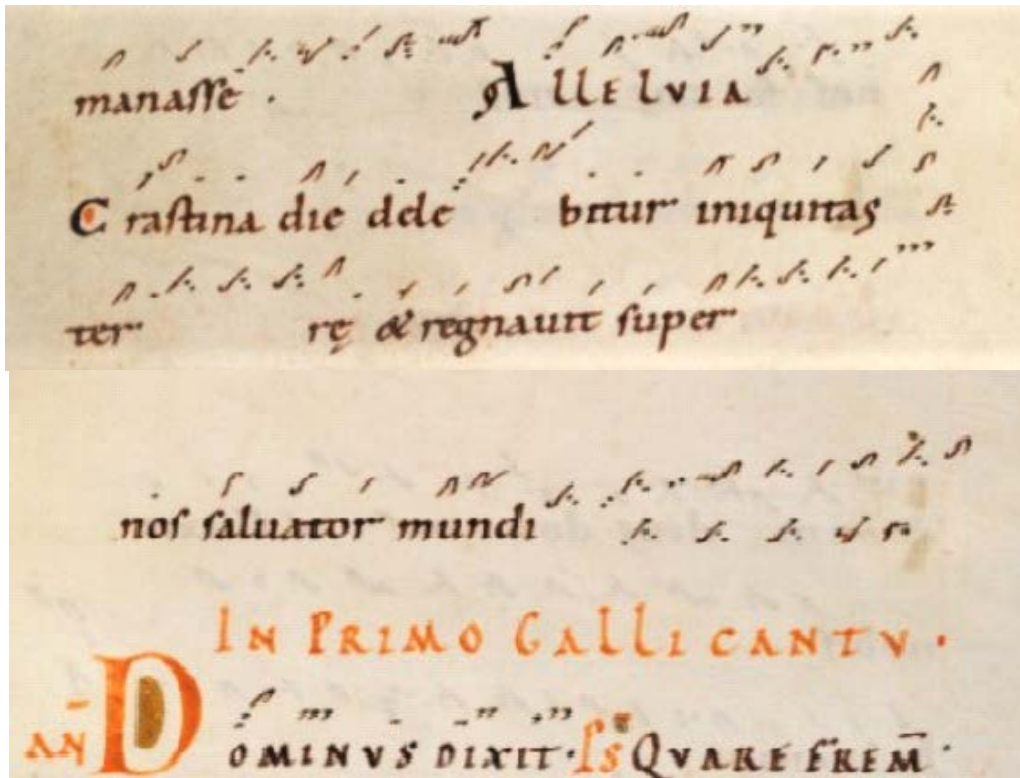 manasse · ALLELVIA
Crastina die dele bitur iniquitas
ter rę & regnauit super
nos saluator mundi
IN PRIMO GALLI CANTV ·
AN̄ DOMINVS DIXIT · Ps QVARE FREM̄ ·